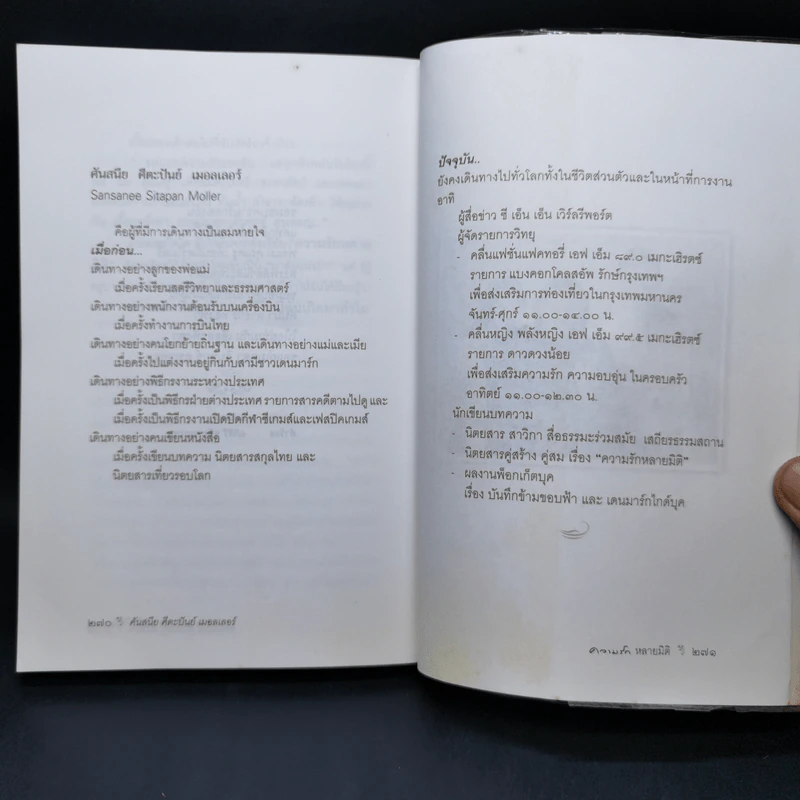 ศันสนีย สีตะปันย์ เมอลเลอร์
Sansanee Sitapan Moller
คือผู้ที่มีการเดินทางเป็นลมหายใจ
เมื่อก่อน...
เดินทางอย่างลูกของพ่อแม่
เมื่อครั้งเรียนสตรีวิทยาและธรรมศาสตร์
เดินทางอย่างพนักงานต้อนรับบนเครื่องบิน
เมื่อครั้งทำงานการบินไทย
เดินทางอย่างคนโยกย้ายถิ่นฐาน และเดินทางอย่างแม่และเมีย
เมื่อครั้งไปแต่งงานอยู่กินกับสามีชาวเดนมาร์ก
เดินทางอย่างพิธีกรงานระหว่างประเทศ
เมื่อครั้งเป็นพิธีกรฝ่ายต่างประเทศ รายการสารคดีตามไปดู และ
เมื่อครั้งเป็นพิธีกรงานเปิดปิดกีฬาซีเกมส์และเฟสปิคเกมส์
เดินทางอย่างคนเขียนหนังสือ
เมื่อครั้งเขียนบทความ นิตยสารสกุลไทย และ
นิตยสารเที่ยวรอบโลก
๒๗๐ ศันสนีย สีตะปันย์ เมอลเลอร์
ปัจจุบัน..
ยังคงเดินทางไปทั่วโลกทั้งในชีวิตส่วนตัวและในหน้าที่การงาน
อาทิ
ผู้สื่อข่าว ซี เอ็น เอ็น เวิร์ลรีพอร์ต
ผู้จัดรายการวิทยุ
- คลื่นแฟชั่นแฟคทอรี่ เอฟ เอ็ม ๘๙.๐ เมกะเฮิรตซ์
รายการ แบงคอกโคลสอัพ รักษ์กรุงเทพฯ
เพื่อส่งเสริมการท่องเที่ยวในกรุงเทพมหานคร
จันทร์-ศุกร์ ๑๑.๐๐-๑๔.๐๐ น.
- คลื่นหญิง พลังหญิง เอฟ เอ็ม ๙๙.๕ เมกะเฮิรตซ์
รายการ ดาวดวงน้อย
เพื่อส่งเสริมความรัก ความอบอุ่น ในครอบครัว
อาทิตย์ ๑๑.๐๐-๑๒.๓๐ น.
นักเขียนบทความ
- นิตยสาร สาวิกา สื่อธรรมะร่วมสมัย เสถียรธรรมสถาน
- นิตยสารคู่สร้าง คู่สม เรื่อง "ความรักหลายมิติ"
- ผลงานพ็อกเก็ตบุค
เรื่อง บันทึกข้ามขอบฟ้า และ เดนมาร์กไกด์บุค
ความรัก หลายมิติ ๒๗๑